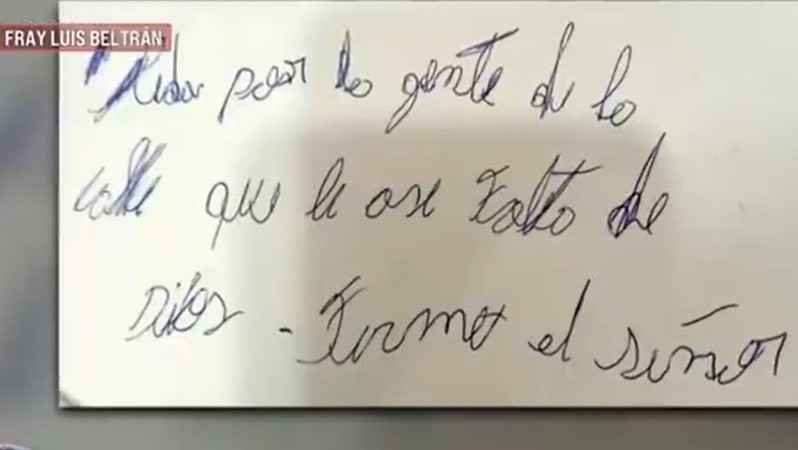 FRAY LUIS BELTRÁN
"Pido por la gente de la
calle que le ase falta de
dios - Firma el señor